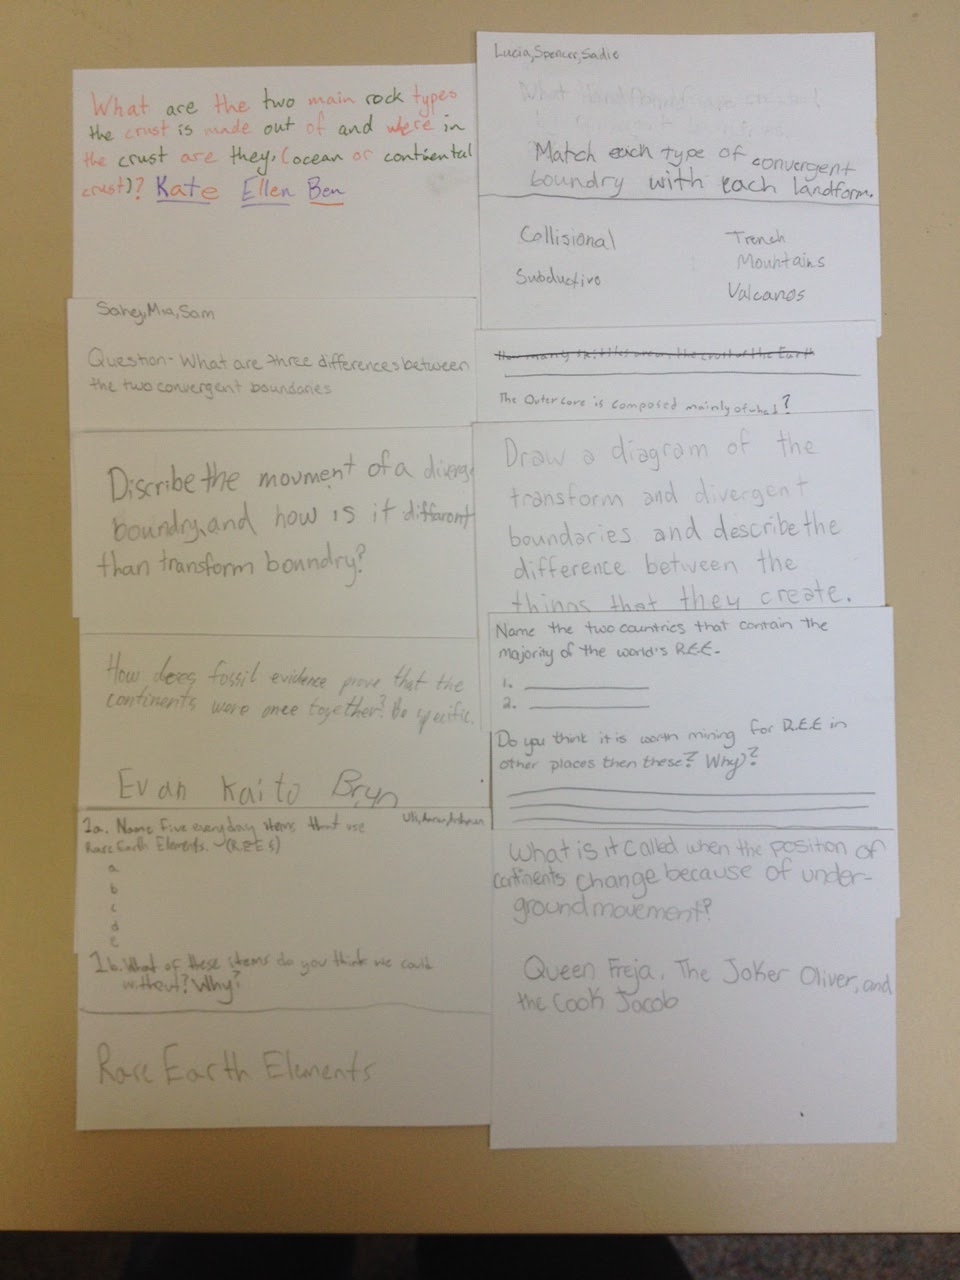 What are the two main rock types
the crust is made out of and were in
the crust are they, (ocean or continental
crust)? Kate Ellen Ben
Sahej, Mia, Sam
Question- What are three differences between
the two convergent boundaries
Discribe the movment of a diverge
boundry, and how is it different
than transform boundry?
How does fossil evidence prove that the
continents were once together? Be specific.
Evan Kaito Bryn
1a. Name five everyday items that use
Rare Earth Elements. (REEs)
a
b
c
d
e
1b. What of these items do you think we could
without? Why?
Rare Earth Elements
Lucia, Spencer, Sadie
Match each type of convergent
boundry with each landform.
Collisional
Subductive
Trench
Mountains
Valcanos
How many the crust of the Earth
The Outer core is composed mainly of what?
Draw a diagram of the
transform and divergent
boundaries and describe the
difference between the
things that they create.
Name the two countries that contain the
majority of the world's R.E.E.
1.
2.
Do you think it is worth mining for R.E.E in
other places then these? Why?
What is it called when the position of
continents change because of under-
ground movement?
Queen Freja, The Joker Oliver, and
the Cook Jacob